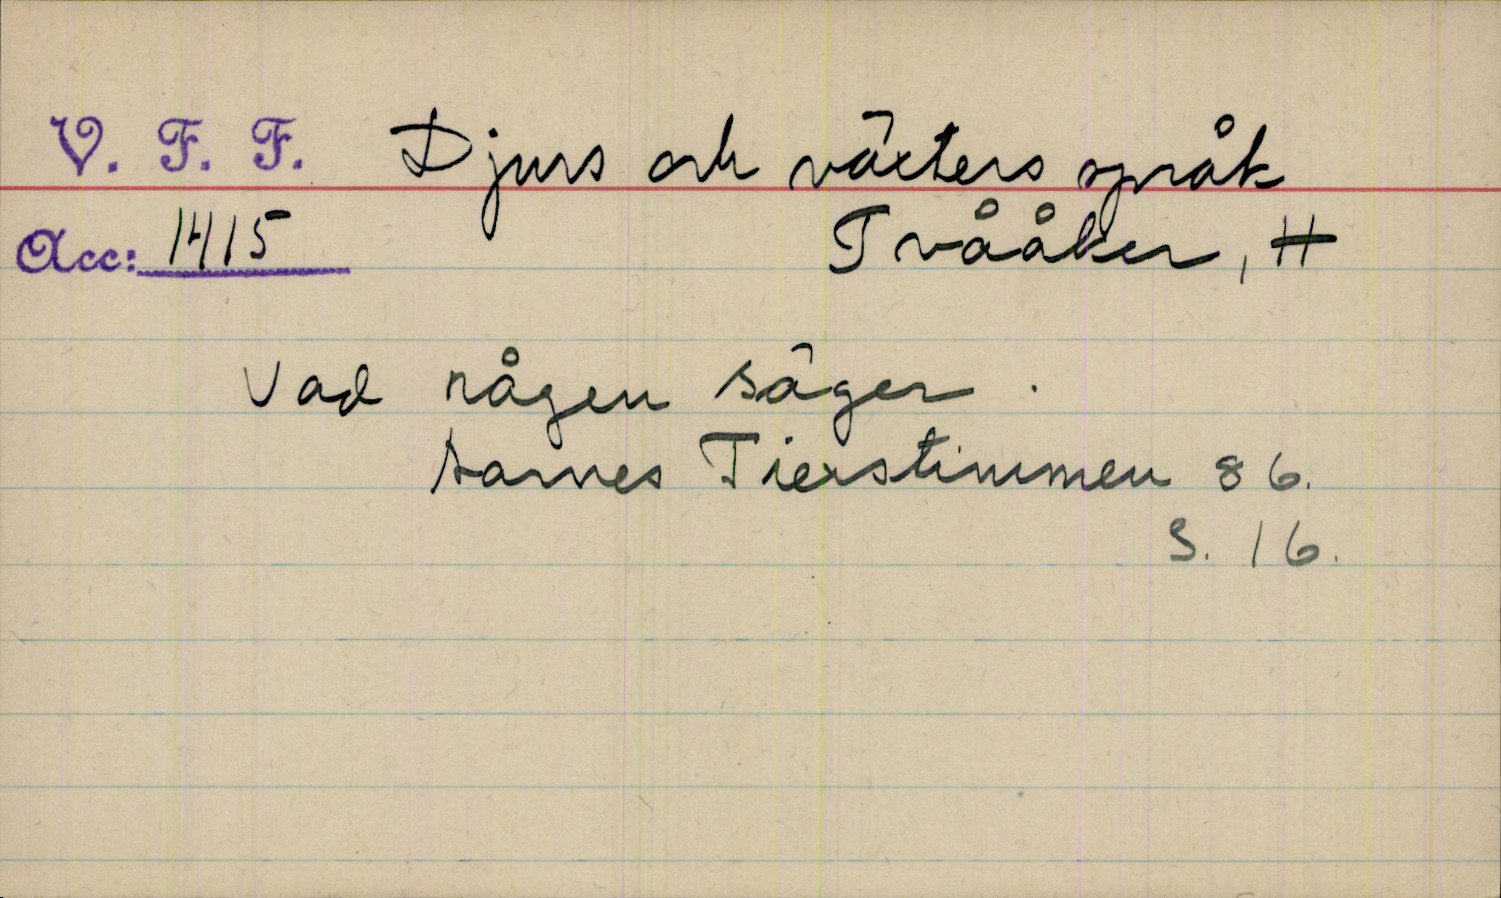 V. F. F. Djurs och växters språk
Acc: 1415 Tvååker, H
Vad rågen säger.
Aarnes Tierstimmen 86.
S. 16.